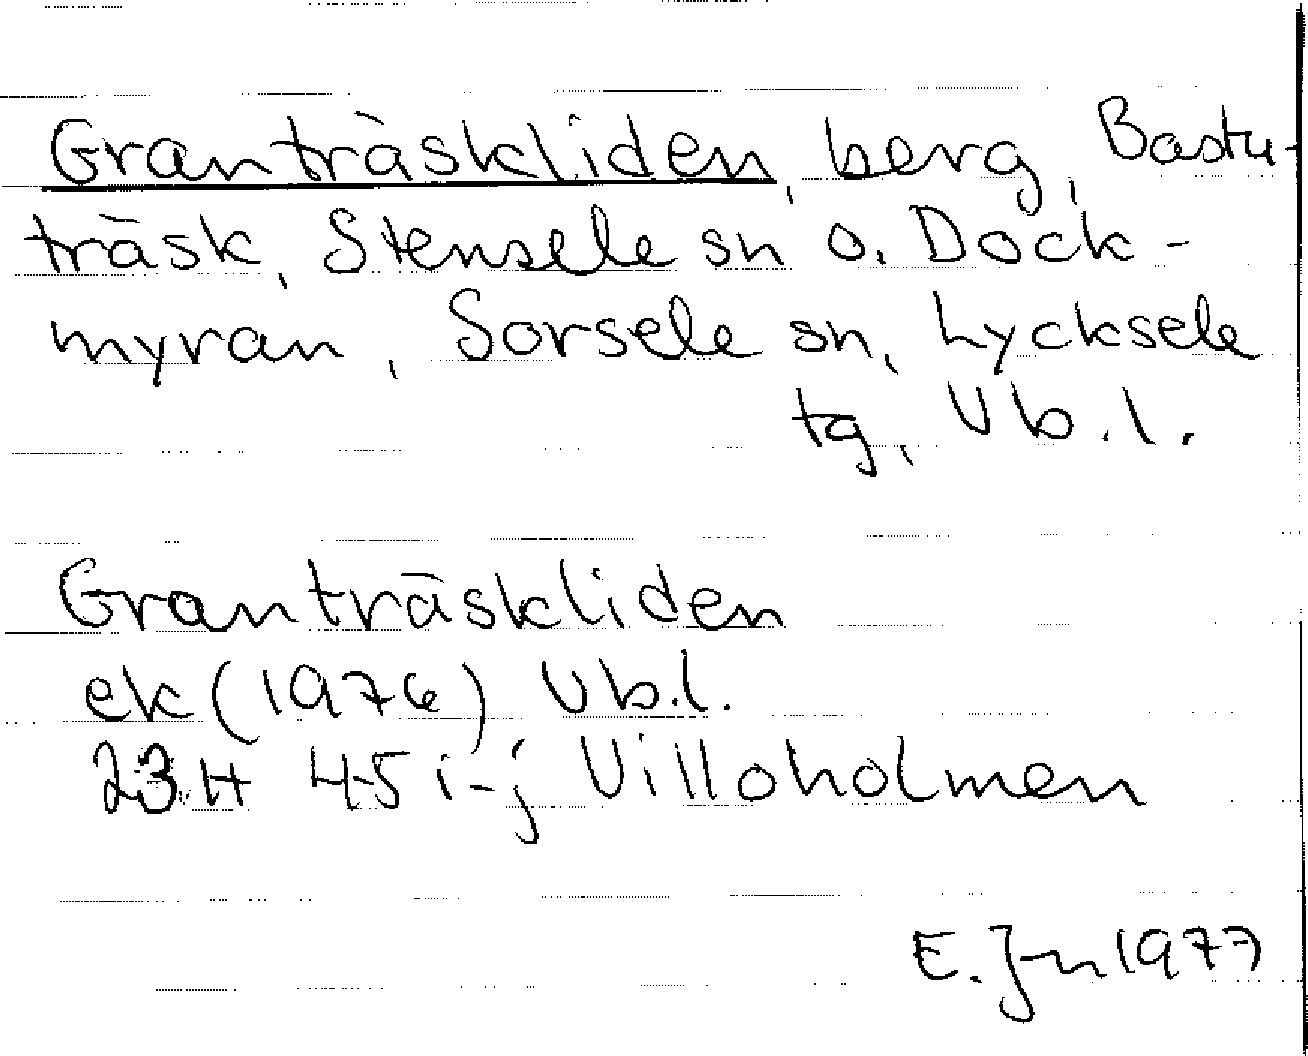 Granträskliden, berg, Bastu-
träsk, Stensele sn o. Dock-
myran, Sorsele sn, Lycksele
tg, Vb.l.
Granträskliden
ek (1976) Vb.l.
23H 45 i-j Villoholmen
E. Jn 1977